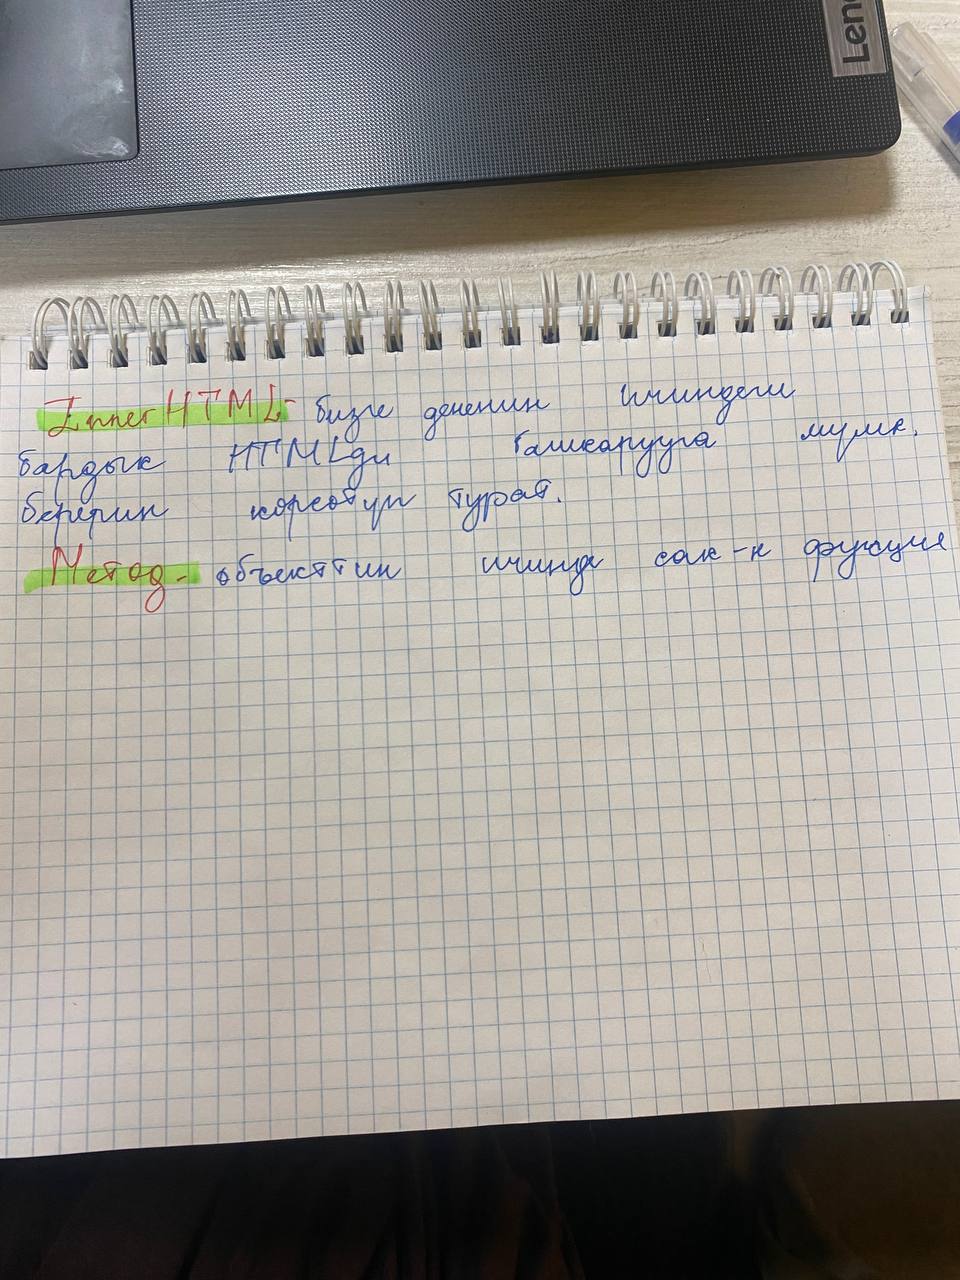 Leno
InnerHTML- бизге дененин ичиндеги
бардык HTMLди башкарууга мумк.
берерин корсотуп турат.
Метод- объекттин ичинде сак-н функция